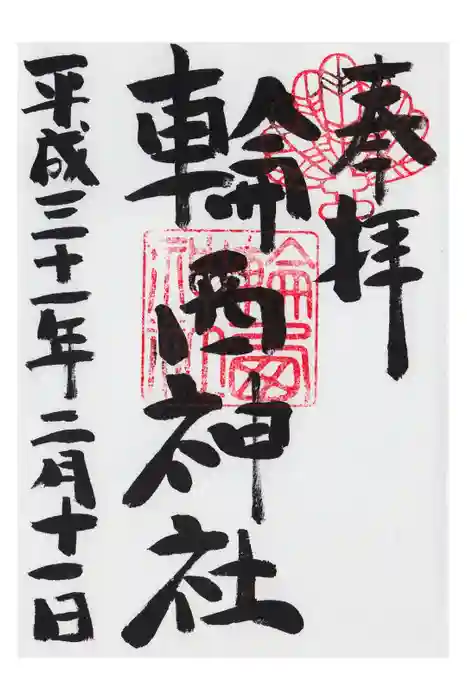 奉拝
輪西神社
平成三十一年二月十一日